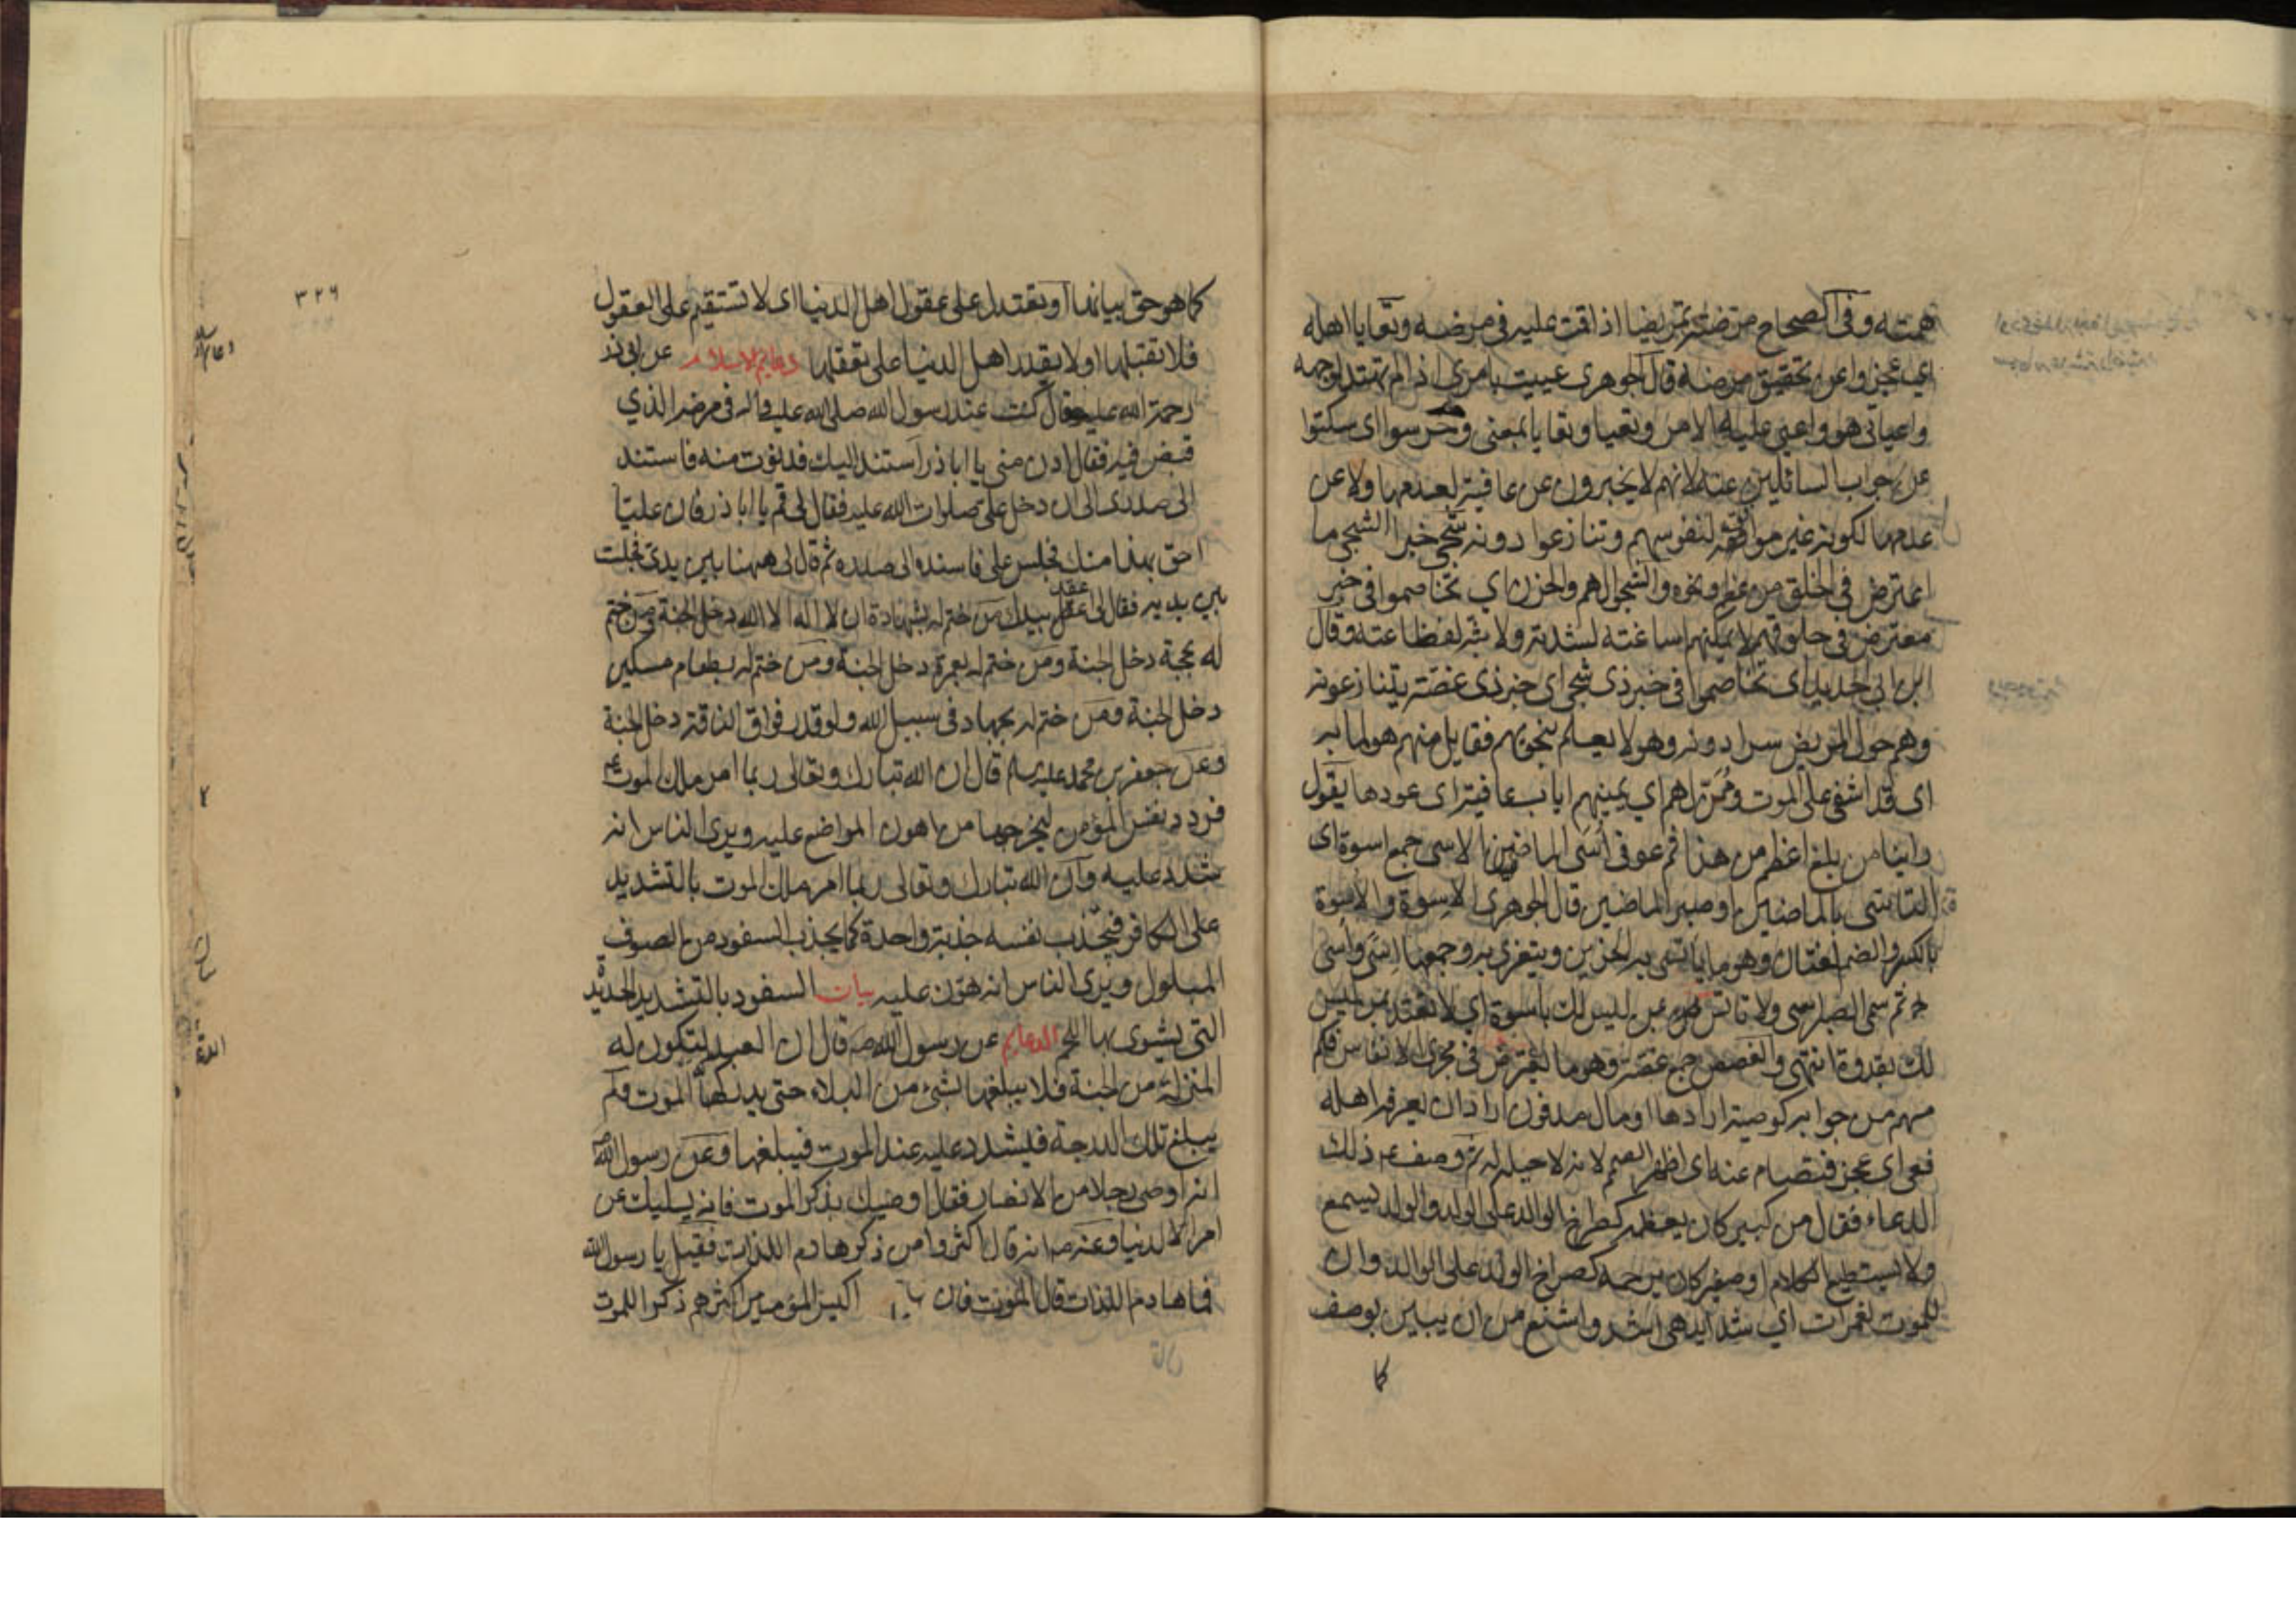 همته وفي الصحاح مرضته تمريضا اذا قمت عليه في مرضه وتعايا اهله
اي عجزوا عن تحقيق مرضه قال الجوهري عييت بامري اذا لم تهتد لوجهه
واعياني هو واعيى عليه الامر وتعيا وتعايا بمعنى وخرسوا اى سكتوا
عن جواب السائلين عنه لانهم لا يخبرون عن عافيته لعدمها ولا عن
عدمها لكونه غير موافقة لنفوسهم وتنازعوا دونه شجي خبر الشجى ما
اعترض في الحلق من عظم ونحوه والشجو الهم والحزن اي تخاصموا في خبر
معترض في حلوقهم لا يمكنهم اساغته لشدته ولا بثه لفظاعته وقال
ابن ابي الحديد اى تخاصموا في خبر ذى شجى اى خبر ذى غصة يتنازعونه
وهم حول المريض سرا دونه وهو لا يعلم بنجويهم فقايل منهم هو لما به
اى قد اشفى على الموت وممن لهم اي يمنيهم اياب عافيته اى عودها يقول
راينا من بلغ اعظم من هذا ثم عوفى اسى الماضين الاسى جمع اسوة اى
التاسى بالماضين او صبر الماضين قال الجوهري الاسوة والاسوة
بالكسر والضم لغتان وهو ما ياتسى به الحزين ويتعزى به وجمعها اسى واسى
ثم سمى الصبر اسى ولا تاتس بمن ليس لك باسوة اي لا تقتد بمن ليس
لك بقدوة انتهى والغصص جمع غصة وهو ما يعترض في مجرى الانفاس فكم
مهم من جوابه كوصية ارادها او مال مدفون اراد ان يعرفه اهله
فعى اى عجز فتصام عنه اى اظهر الصمم لانه لا حيلة له ثم وصف ذلك
الدعاء فقال من كبير كان يعظمه كصراخ الوالد على الولد والولد يسمع
ولا يستطيع الكلام او صغير كان يرحمه كصراخ الولد على الوالد وان
للموت لغمرات اي شدايد هي اشد واشنع من ان يبين بوصف
كما
٣٢٩
كما هو حق بيانها او تعتدل على عقول اهل الدنيا اى لا تستقيم على العقول
فلا تقبلها او لا يقدر اهل الدنيا على تعقلها دعايم الاسلام عن ابي ذر
رحمة الله عليه قال كنت عند رسول الله صلى الله عليه واله في مرضه الذي
قبض فيه فقال ادن مني يا اباذر استند اليك فدنوت منه فاستند
الى صدرى الى ان دخل علي صلوات الله عليه فقال لى قم يا اباذر فان عليا
احق بهذا منك فجلس علي فاسنده الى صدره ثم قال لى ههنا بين يدى فجلست
بين يديه فقال لى اعقد بيدك من ختم له بشهادة ان لا اله الا الله دخل الجنة ومن ختم
له بحجة دخل الجنة ومن ختم له بعمرة دخل الجنة ومن ختم له بطعام مسكين
دخل الجنة ومن ختم له بجهاد في سبيل الله ولو قدر فواق الناقة دخل الجنة
وعن جعفر بن محمد عليه السلم قال ان الله تبارك وتعالى ربما امر ملك الموت
فردد نفس المؤمن ليخرجها من اهون المواضع عليه ويرى الناس انه
شدد عليه وان الله تبارك وتعالى ربما امر ملك الموت بالتشديد
على الكافر فيجذب نفسه جذبة واحدة كما يجذب السفود من الصوف
المبلول ويرى الناس انه هون عليه بيان السفود بالتشديد الحديدة
التي يشوى بها اللحم الدعايم عن رسول الله ص قال ان العبد لتكون له
المنزلة من الجنة فلا يبلغها بشئ من البلاء حتى يدركه الموت ولم
يبلغ تلك الدرجة فيشدد عليه عند الموت فيبلغها وعن رسول الله
انه اوصى رجلا من الانصار فقال اوصيك بذكر الموت فانه يسليك عن
امر الدنيا وعنه ص انه قال اكثروا من ذكر هادم اللذات فقيل يا رسول الله
فما هادم اللذات قال الموت فان اكيس المؤمنين اكثرهم ذكرا للموت